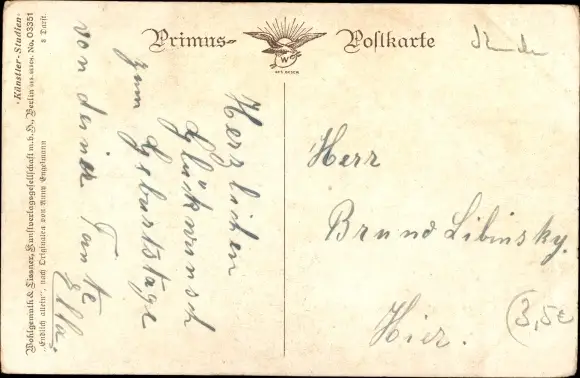 Primus- Postkarte
W
Herzlichen
Glückwunsch
zum Geburtstage
von deiner Tante
Ella.
Herr
Bruno Libinsky.
Hier.
(3,5€
"Künstler-Studien"
8 Darst.
Wohlgemuth & Lissner, Kunstverlagsgesellschaft m.b.H., Berlin No. 03351
„Endlich allein", nach Originalien von Anny Engelmann